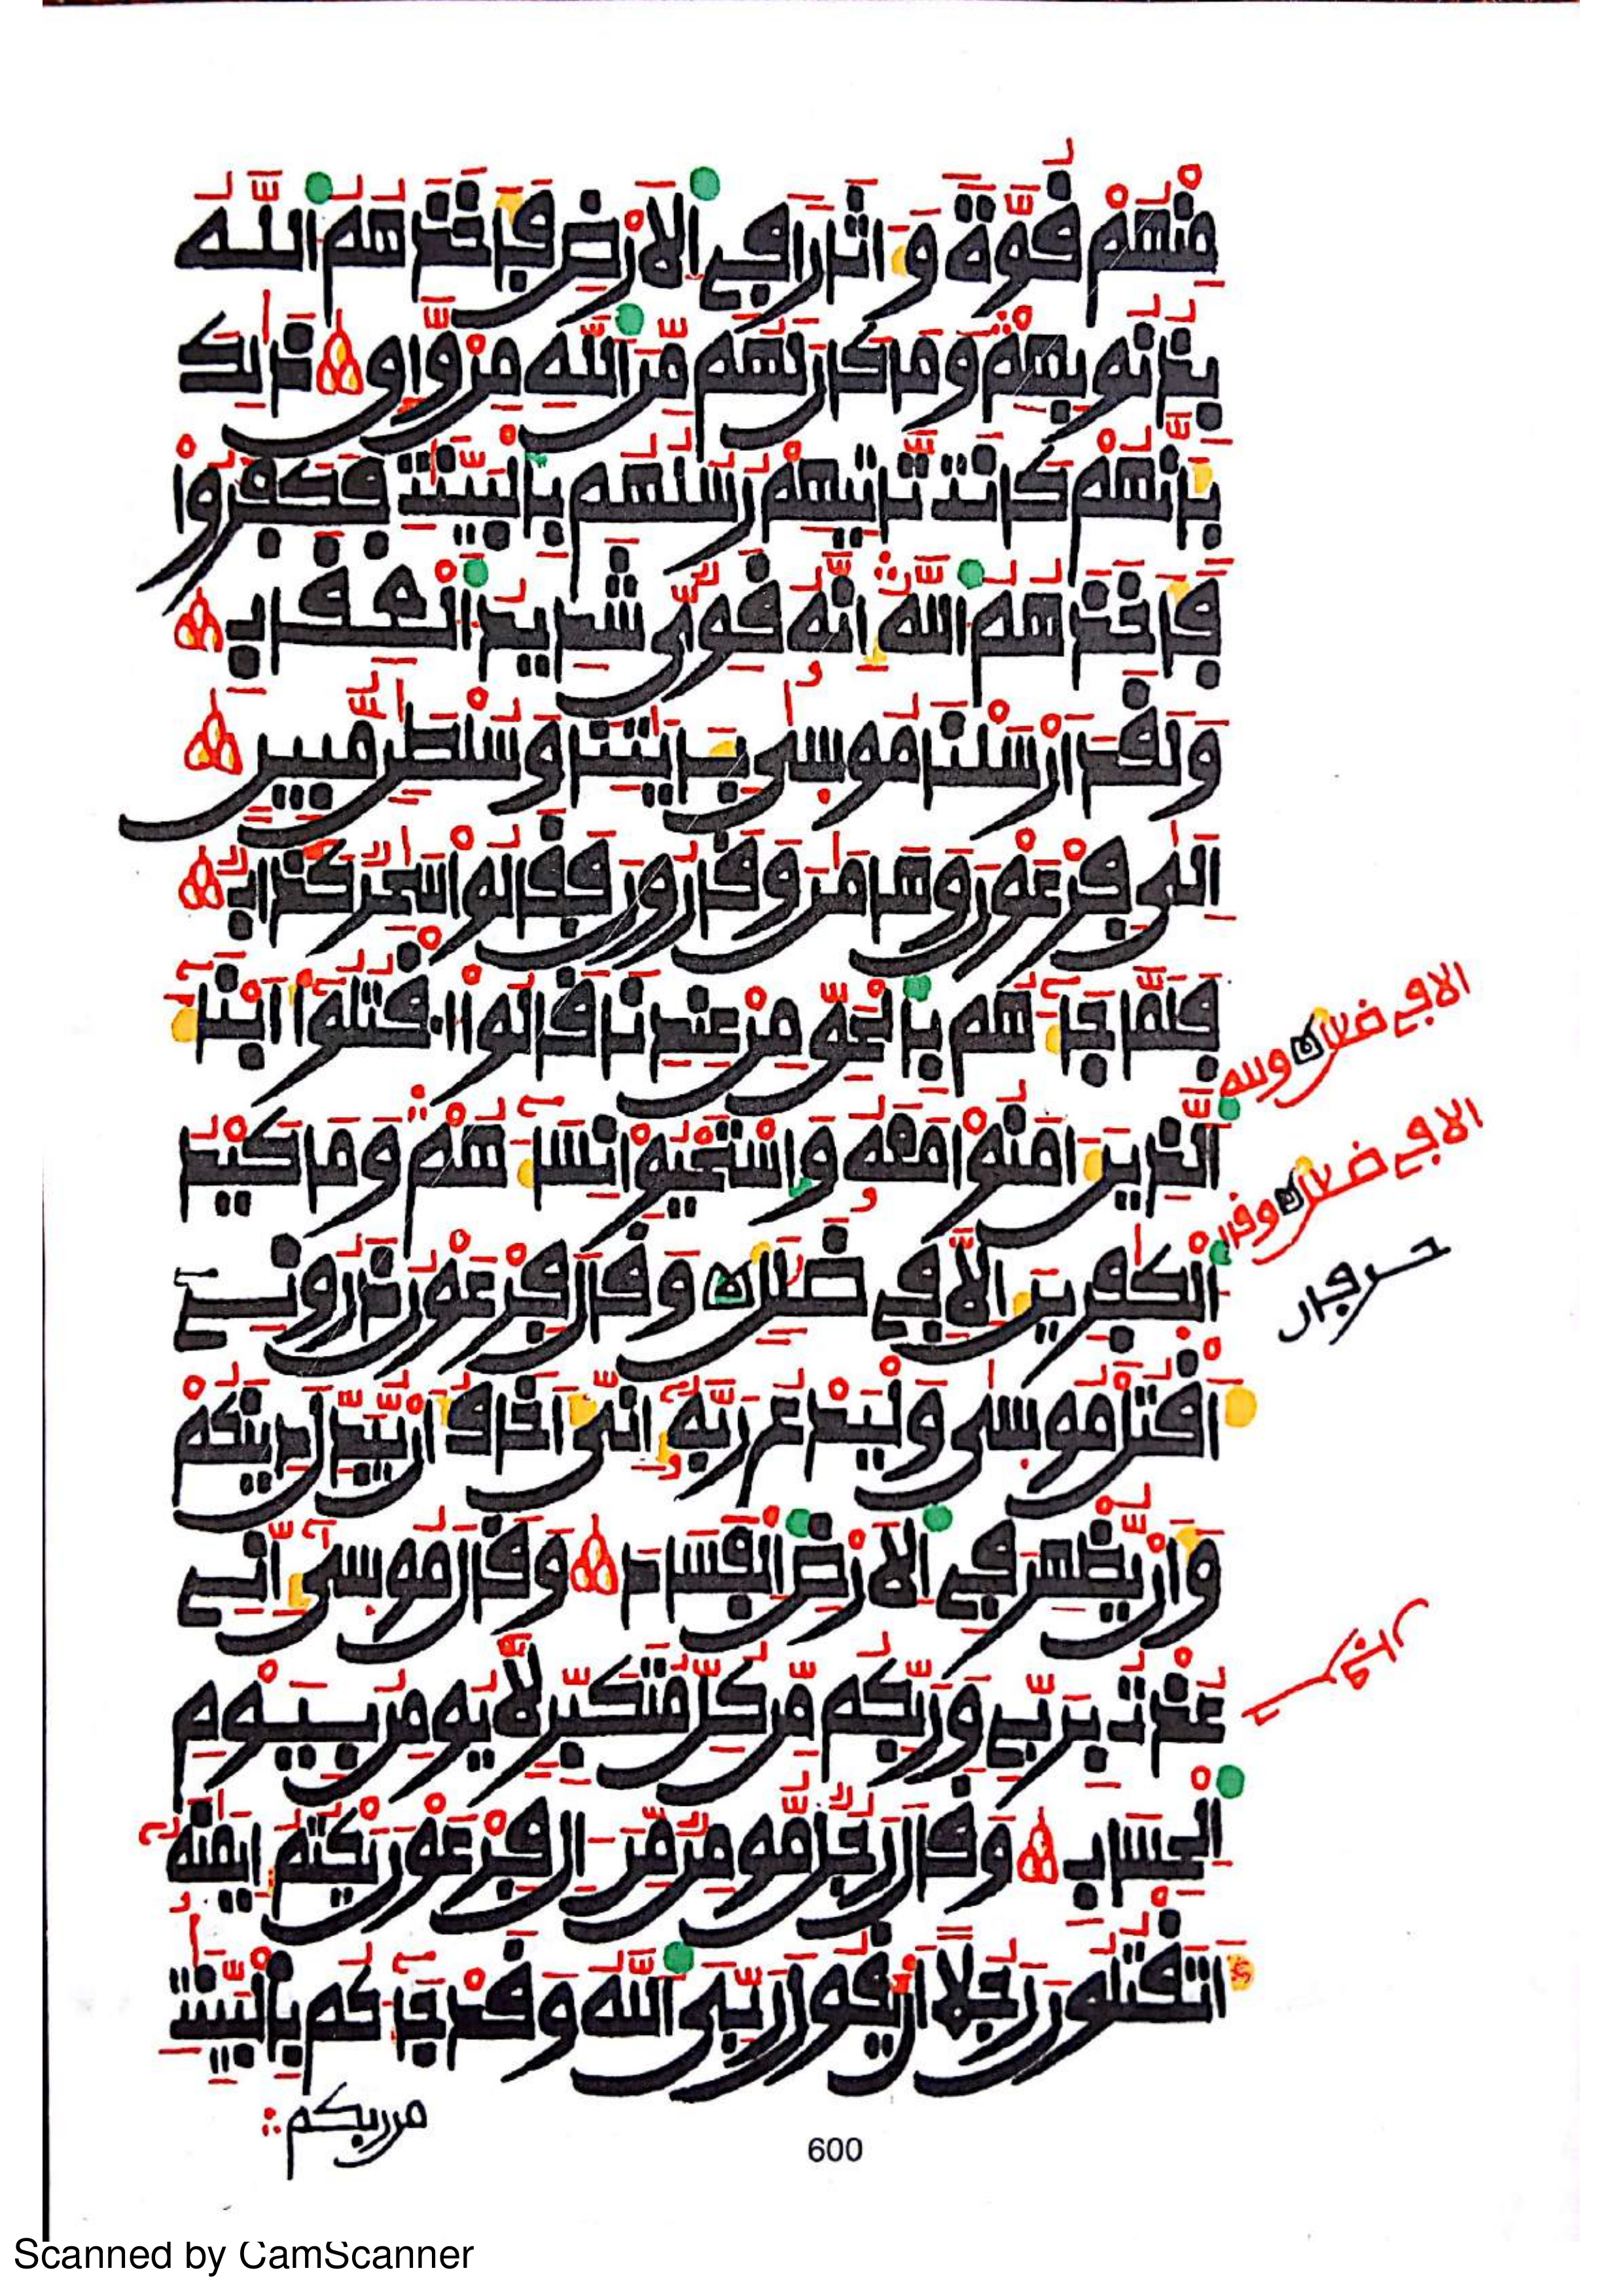 مِنْهُمْ قُوَّةً وَءَاثَارًا فِي اِ۬لَارْضِ فَأَخَذَهُمُ اُ۬للَّهُ
بِذُنُوبِهِمْ وَمَا كَانَ لَهُم مِّنَ اَ۬للَّهِ مِنْ وَّاقٖ ذَٰلِكَ
بِأَنَّهُمْ كَانَت تَّأْتِيهِمْ رُسُلُهُم بِالْبَيِّنَٰتِ فَكَفَرُواْ
فَأَخَذَهُمُ اُ۬للَّهُ إِنَّهُۥ قَوِيّٞ شَدِيدُ اُ۬لْعِقَابِ
وَلَقَدَ اَرْسَلْنَا مُوسَىٰ بِـَٔايَٰتِنَا وَسُلْطَٰنٖ مُّبِينٍ
اِلَىٰ فِرْعَوْنَ وَهَٰمَٰنَ وَقَٰرُونَ فَقَالُواْ سَٰحِرٞ كَذَّابٞ
فَلَمَّا جَآءَهُم بِالْحَقِّ مِنْ عِندِنَا قَالُواْ اُ۟قْتُلُوٓاْ أَبْنَآءَ
اَ۬لذِينَ ءَامَنُواْ مَعَهُۥ وَاسْتَحْيُواْ نِسَآءَهُمْ وَمَا كَيْدُ
اُ۬لْكٰ۪فِرِينَ إِلَّا فِي ضَلَٰلٖ وَقَالَ فِرْعَوْنُ ذَرُونِيٓ
أَقْتُلْ مُوسَىٰ وَلْيَدْعُ رَبَّهُۥٓ إِنِّيَ أَخَافُ أَنْ يُّبَدِّلَ دِينَكُمْ
وَأَنْ يُّظْهِرَ فِي اِ۬لَارْضِ اِ۬لْفَسَادَ وَقَالَ مُوسَىٰٓ إِنِّي
عُذْتُ بِرَبِّي وَرَبِّكُم مِّن كُلِّ مُتَكَبِّرٖ لَّا يُومِنُ بِيَوْمِ
اِ۬لْحِسَابِ وَقَالَ رَجُلٞ مُّومِنٞ مِّنَ اٰلِ فِرْعَوْنَ يَكْتُمُ إِيمَٰنَهُۥٓ
أَتَقْتُلُونَ رَجُلًا اَنْ يَّقُولَ رَبِّيَ اَ۬للَّهُ وَقَدْ جَآءَكُم بِالْبَيِّنَٰتِ
من ربكم
الا في ضلال ولله
الا في ضلال وقال
حرفان
600
Scanned by CamScanner